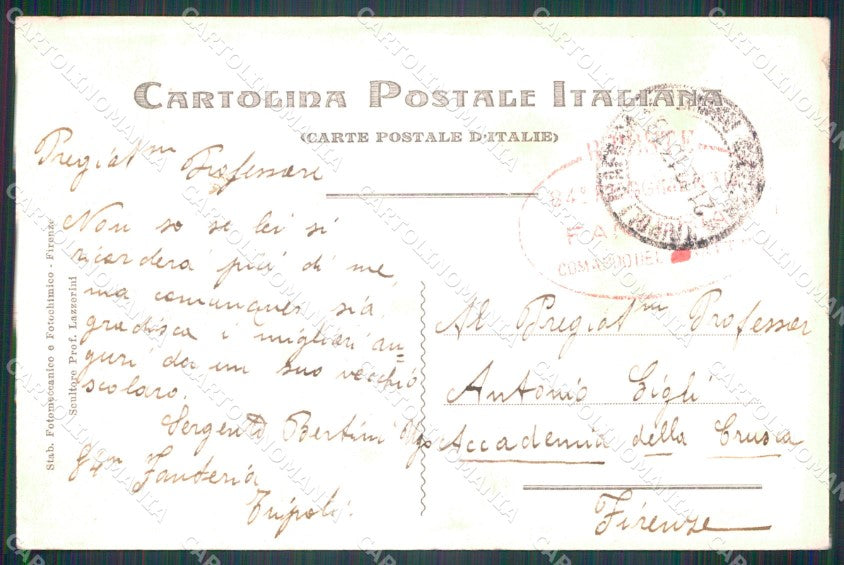 CARTOLINA POSTALE ITALIANA
(CARTE POSTALE D'ITALIE)
Pregiat mo Professore
Non so se lei si
ricorderà più di me,
ma comunque sia
gradisca i migliori au=
guri da un suo vecchio
scolaro.
Sergente Bertini Ugo
84mo Fanteria
Tripoli.
Al Pregiat mo Professor
Antonio Gigli
Accademia della Crusca
Firenze
Stab. Fotomeccanico e Fotochimico - Firenze
Scultore Prof. Lazzerini
84°
FAN
COMANDO DEL
CARTOLINOMANIA